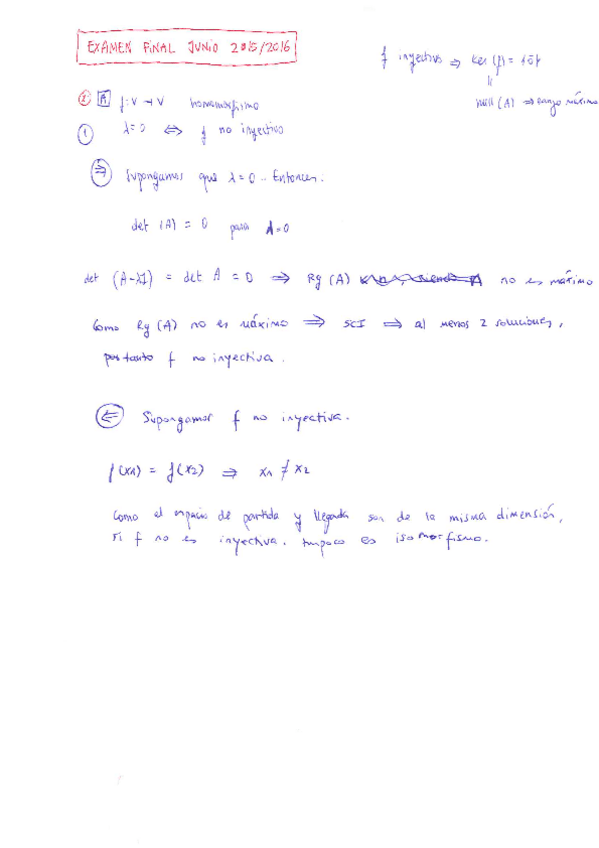 EXAMEN FINAL JUNIO 2015/2016
f inyectiva ⇒ Ker (f) = {0}
||
null (A) ⇒ rango máximo
1 A f: V → V homomorfismo
1 λ=0 ⇔ f no inyectivo
⇒ Supongamos que λ = 0. Entonces:
det (A) = 0 para λ=0
det (A-λI) = det A = 0 ⇒ Rg (A) no es máximo
Como Rg (A) no es máximo ⇒ SCI ⇒ al menos 2 soluciones,
por tanto f no inyectiva.
⇐ Supongamos f no inyectiva.
f(x1) = f(x2) ⇒ x1 ≠ x2
Como el espacio de partida y llegada son de la misma dimensión,
si f no es inyectiva. tampoco es isomorfismo.